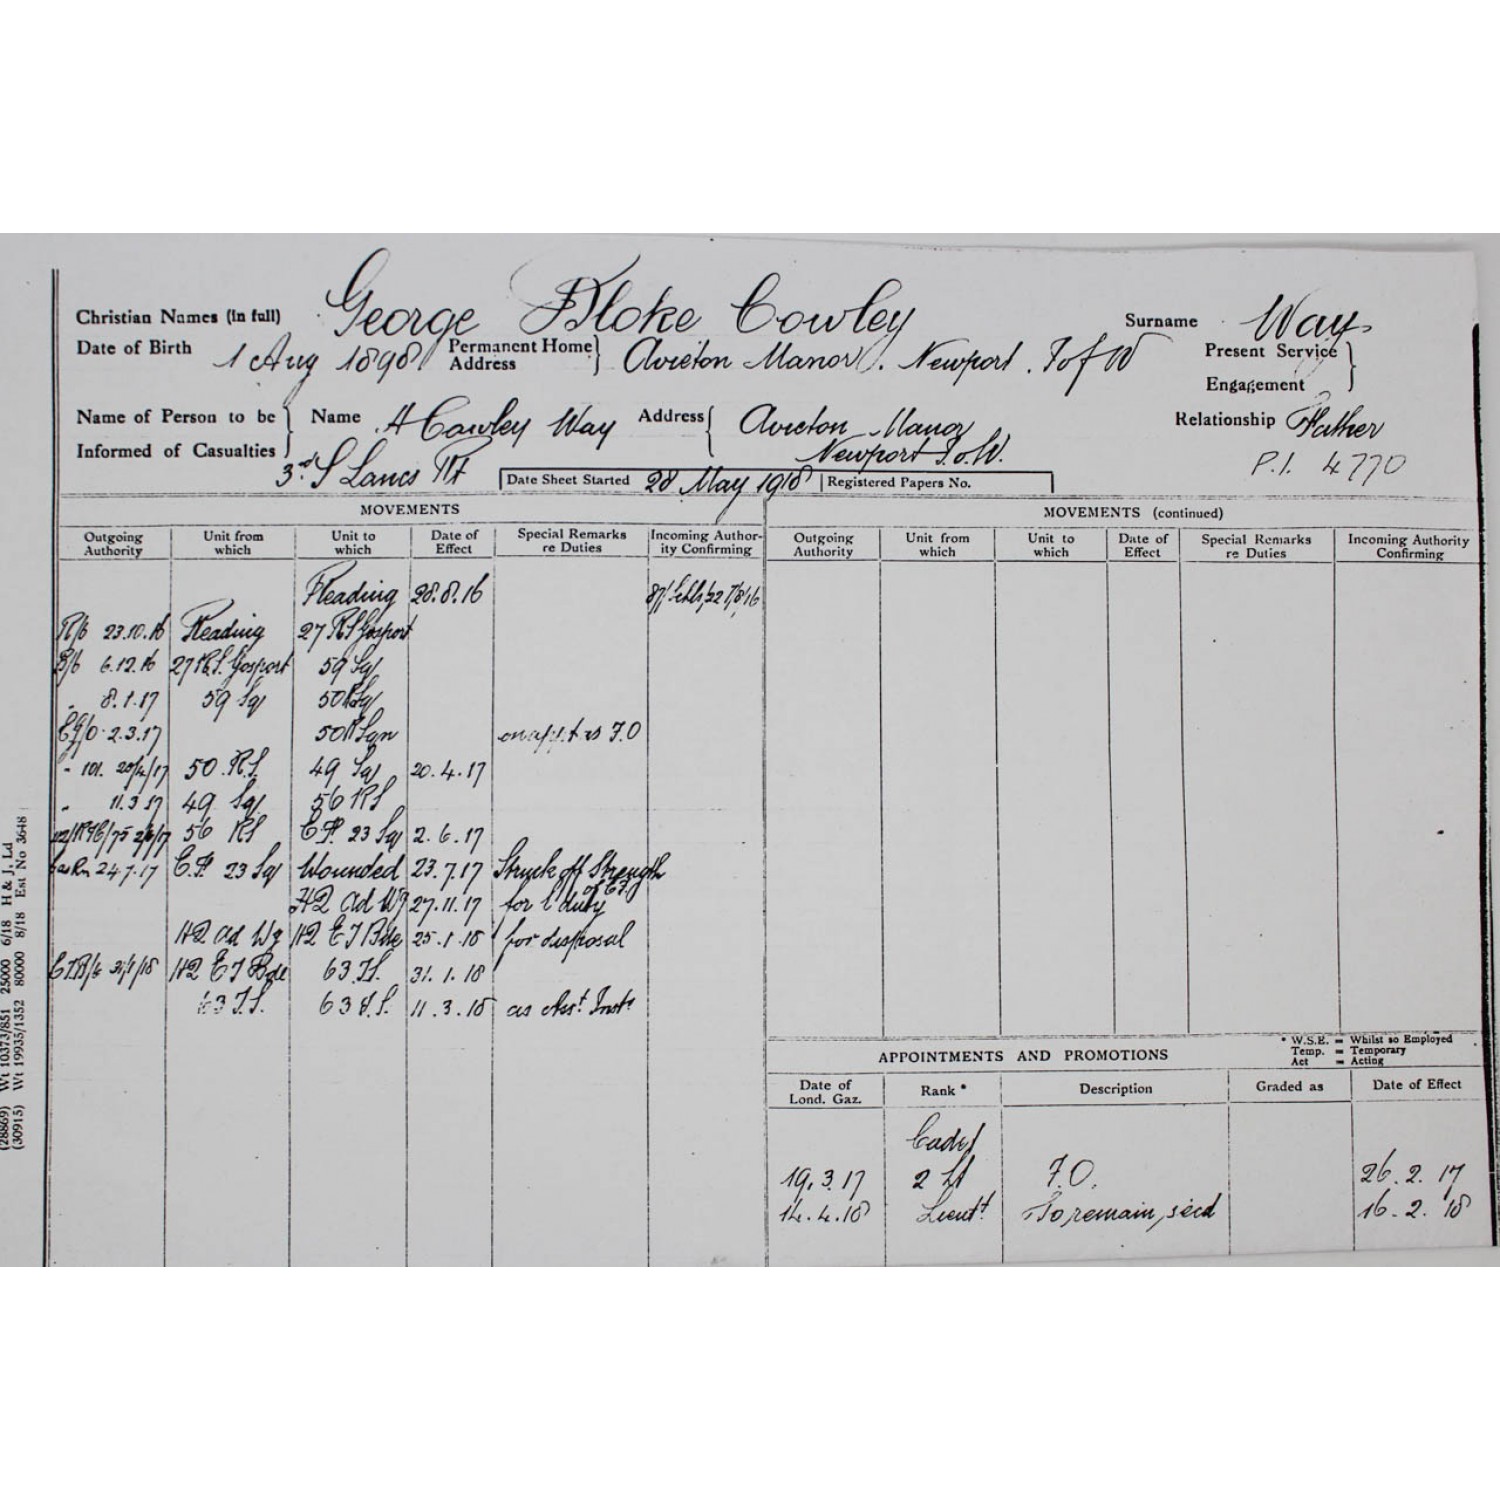 Christian Names (in full) George Bloke Cowley Surname Way
Date of Birth 1 Aug 1898 Permanent Home Address } Avreton Manor. Newport. I of W Present Service
Engagement }
Name of Person to be Informed of Casualties } Name H Cowley Way Address { Avreton Manor Relationship Father
Newport I.o.W. P.1. 4770
3rd S Lancs Rt Date Sheet Started 28 May 1918 Registered Papers No.
MOVEMENTS MOVEMENTS (continued)
Outgoing Authority Unit from which Unit to which Date of Effect Special Remarks re Duties Incoming Authority Confirming Outgoing Authority Unit from which Unit to which Date of Effect Special Remarks re Duties Incoming Authority Confirming
Reading 28.8.16
R/6 23.10.16 Reading 27 RS Gosport
6.12.16 27 R.S. Gosport 59 Sq
" 8.1.17 59 Sq 50 R Sq
2.3.17 50 R Sqn on appt as F.O
" 101. 20/4/17 50 R.S. 49 Sq 20.4.17
" 11.3.17 49 Sq 56 RS
56 RS E.F. 23 Sq 2.6.17
24.7.17 E.F. 23 Sq Wounded 23.7.17 Struck off Strength of E.F.
HQ Ad Wg 27.11.17 for l duty
HQ Ad Wg HQ E T Bde 25.1.18 for disposal
31/1/18 HQ E T Bde 63 T.S. 31.1.18
63 T.S. 63 T.S. 11.3.18 as Asst. Instr
* W.S.E. = Whilst so Employed
Temp. = Temporary
Act = Acting
APPOINTMENTS AND PROMOTIONS
Date of Lond. Gaz. Rank * Description Graded as Date of Effect
Cadet
19.3.17 2 Lt F.O. 26.2.17
14.4.18 Lieutt. To remain, secd 16.2.18
(28869) Wt 10373/851 25000 6/18 H & J, Ld
(30915) Wt 19935/1352 80000 8/18 Est No 3648